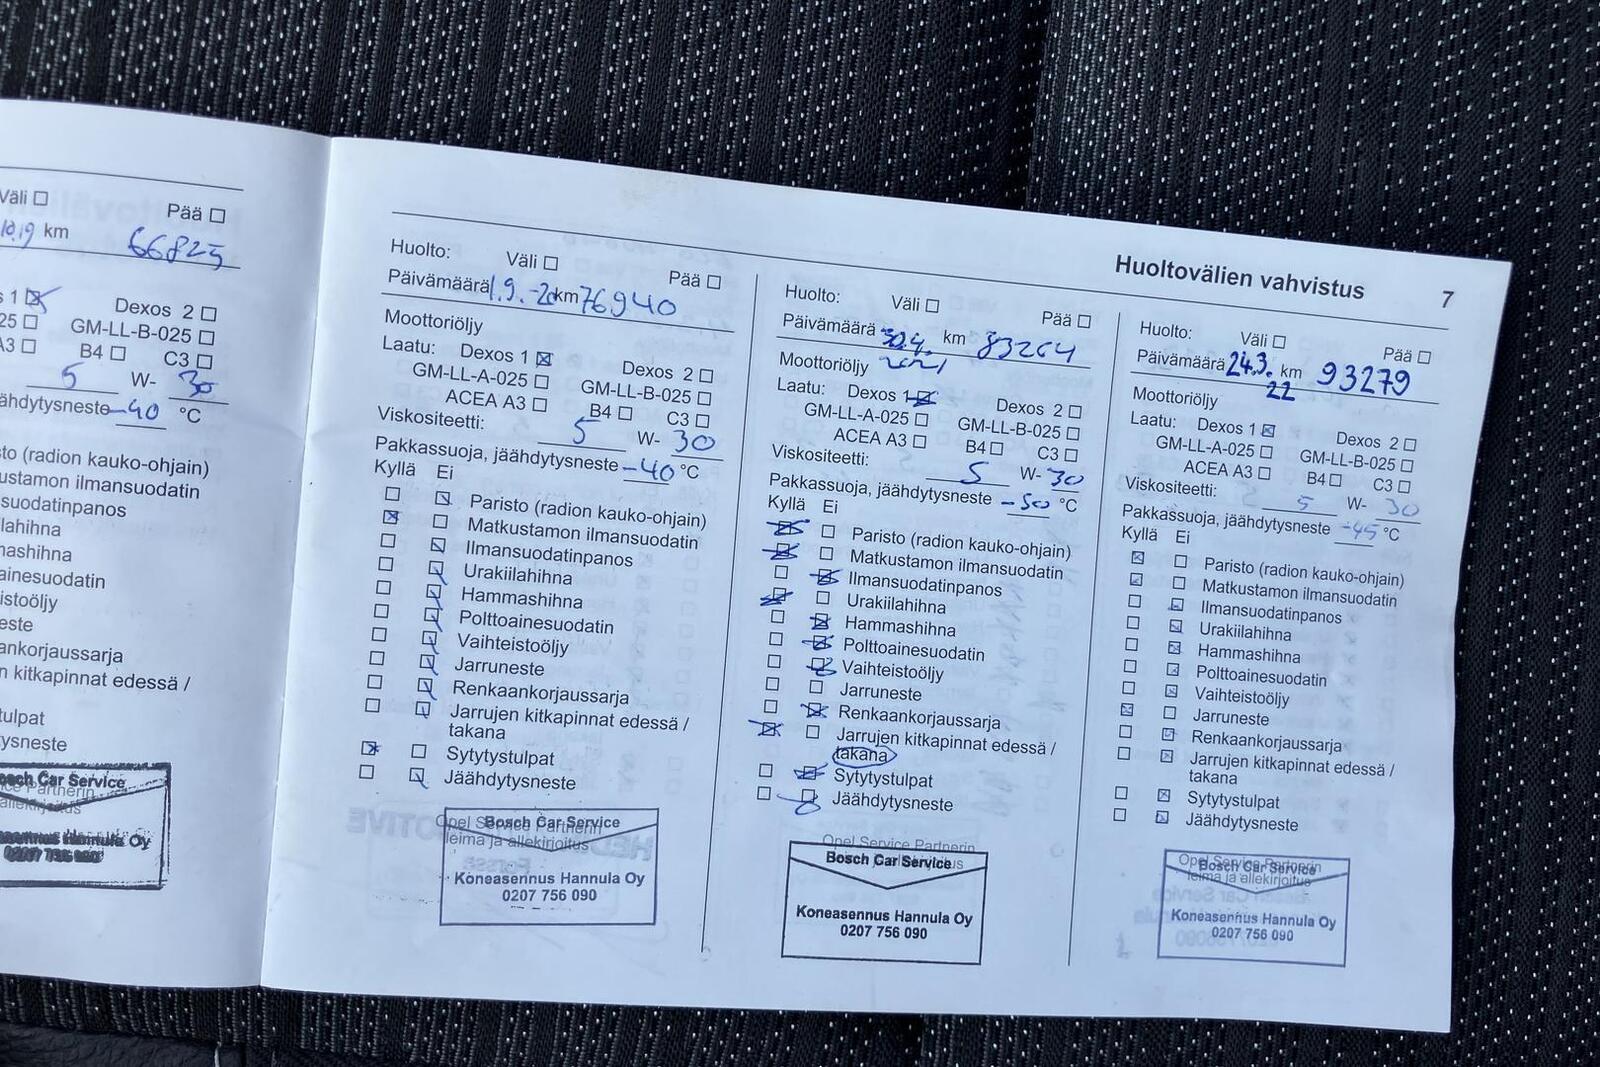 Väli ☐ Pää ☐
10.19 km 66825
s 1 ☒ Dexos 2 ☐
25 ☐ GM-LL-B-025 ☐
A3 ☐ B4 ☐ C3 ☐
5 W- 30
ähdytysneste -40 °C
to (radion kauko-ohjain)
ustamon ilmansuodatin
suodatinpanos
lahihna
nashihna
ainesuodatin
istoöljy
este
ankorjaussarja
n kitkapinnat edessä /
tulpat
ysneste
Bosch Car Service
Koneasennus Hannula Oy
0207 756 090
Huoltovälien vahvistus 7
Huolto: Väli ☐ Pää ☐
Päivämäärä 1.9.-20 km 76940
Moottoriöljy
Laatu: Dexos 1 ☒ Dexos 2 ☐
GM-LL-A-025 ☐ GM-LL-B-025 ☐
ACEA A3 ☐ B4 ☐ C3 ☐
Viskositeetti: 5 W- 30
Pakkassuoja, jäähdytysneste -40 °C
Kyllä Ei
☐ ☒ Paristo (radion kauko-ohjain)
☒ ☐ Matkustamon ilmansuodatin
☐ ☒ Ilmansuodatinpanos
☐ ☒ Urakiilahihna
☐ ☒ Hammashihna
☐ ☒ Polttoainesuodatin
☐ ☒ Vaihteistoöljy
☐ ☒ Jarruneste
☐ ☒ Renkaankorjaussarja
☐ ☒ Jarrujen kitkapinnat edessä /
takana
☒ ☐ Sytytystulpat
☐ ☒ Jäähdytysneste
Opel Service Partnerin
leima ja allekirjoitus
Bosch Car Service
Koneasennus Hannula Oy
0207 756 090
Huolto: Väli ☐ Pää ☐
Päivämäärä 30.4. km 83264
2021
Moottoriöljy
Laatu: Dexos 1 ☒ Dexos 2 ☐
GM-LL-A-025 ☐ GM-LL-B-025 ☐
ACEA A3 ☐ B4 ☐ C3 ☐
Viskositeetti: 5 W- 30
Pakkassuoja, jäähdytysneste -50 °C
Kyllä Ei
☒ ☐ Paristo (radion kauko-ohjain)
☒ ☐ Matkustamon ilmansuodatin
☐ ☒ Ilmansuodatinpanos
☒ ☐ Urakiilahihna
☐ ☒ Hammashihna
☐ ☒ Polttoainesuodatin
☐ ☒ Vaihteistoöljy
☐ ☐ Jarruneste
☐ ☒ Renkaankorjaussarja
☒ ☐ Jarrujen kitkapinnat edessä /
takana
☐ ☒ Sytytystulpat
☐ ☒ Jäähdytysneste
Opel Service Partnerin
Bosch Car Service
Koneasennus Hannula Oy
0207 756 090
Huolto: Väli ☐ Pää ☐
Päivämäärä 24.3. km 93279
22
Moottoriöljy
Laatu: Dexos 1 ☒ Dexos 2 ☐
GM-LL-A-025 ☐ GM-LL-B-025 ☐
ACEA A3 ☐ B4 ☐ C3 ☐
Viskositeetti: 5 W- 30
Pakkassuoja, jäähdytysneste -45 °C
Kyllä Ei
☒ ☐ Paristo (radion kauko-ohjain)
☒ ☐ Matkustamon ilmansuodatin
☐ ☒ Ilmansuodatinpanos
☐ ☒ Urakiilahihna
☐ ☒ Hammashihna
☐ ☒ Polttoainesuodatin
☐ ☒ Vaihteistoöljy
☒ ☐ Jarruneste
☐ ☒ Renkaankorjaussarja
☐ ☒ Jarrujen kitkapinnat edessä /
takana
☐ ☒ Sytytystulpat
☐ ☒ Jäähdytysneste
Opel Service Partnerin
leima ja allekirjoitus
Bosch Car Service
Koneasennus Hannula Oy
0207 756 090